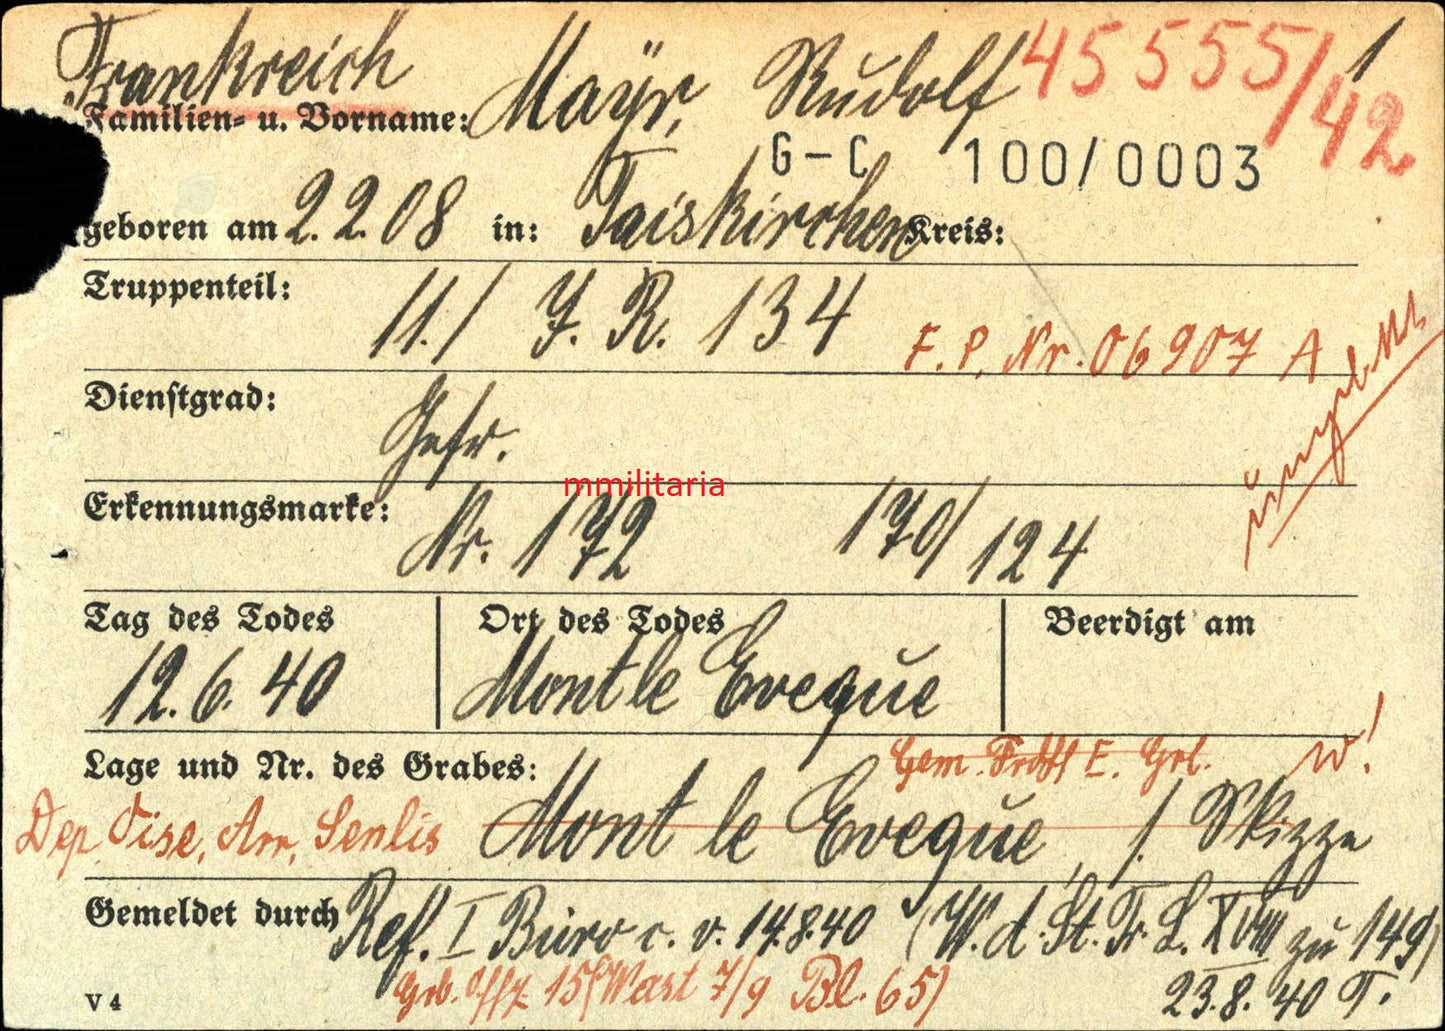 Frankreich
Familien- u. Vorname: Mayr, Rudolf 45555/42 1
G-C 100/0003
geboren am 2.2.08 in: Taiskirchen Kreis:
Truppenteil:
11./ J. R. 134 F. P. Nr. 06907 A
Dienstgrad:
Gefr.
mmilitaria
Erkennungsmarke:
Nr. 172 170/124
Tag des Todes Ort des Todes Beerdigt am
12.6.40 Mont le Eveque
Lage und Nr. des Grabes: Gem. E. Grl. w!
Dep. Oise, Arr. Senlis Mont le Eveque, / Skizze
Gemeldet durch Ref. I Büro c. v. 14.8.40 (W. d. St. Tr. L. XVIII zu 149)
Grb. Offz. 15 (Wast 7/9 Bl. 65) 23.8.40 T.
V 4